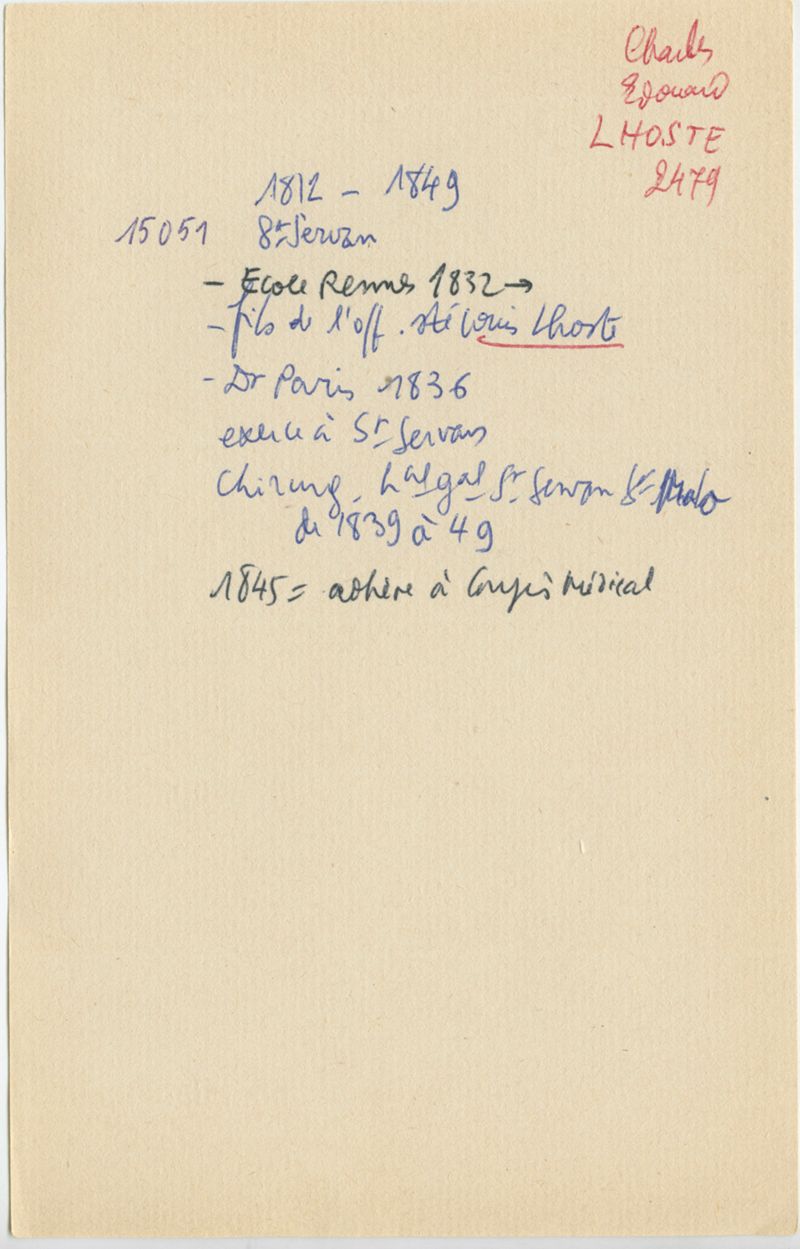 Charles
Edouard
LHOSTE
2479
1812 - 1849
15051 St Servan
- Ecole Rennes 1832 →
- fils de l'off. sté Louis Lhoste
- Dr Paris 1836
exerce à St Servan
Chirurg. hal gal St Servan St Malo
de 1839 à 49
1845 = adhère à Congrès Médical